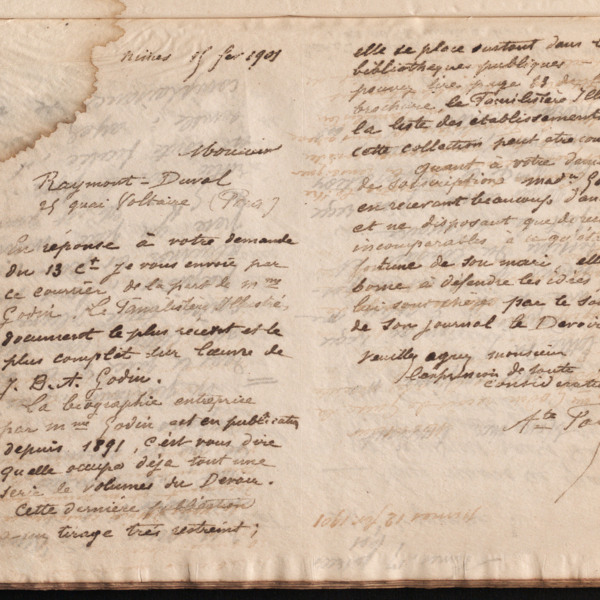 Nimes 15 fer 1901
Monsieur
Raymont-Duval
25 quai Voltaire (Paris)
En réponse à votre demande
du 13 ct je vous envoie par
ce courrier de la part de mme
Godin Le Familistère Illustré,
document le plus récent et le
plus complet sur l'œuvre de
J. B. A. Godin.
La biographie entreprise
par mme Godin est en publication
depuis 1891, c'est vous dire
qu'elle occupe déja tout une
serie de volumes du Devoir.
Cette dernière publication
a un tirage très restreint;
elle se place surtout dans
bibliothèques publiques
pouvez lire page 23
brochure, le Familistère Ill
la liste des établissements
cette collection peut être con
quant à votre dem
de souscription mad
en recevant beaucoup d'
et ne disposant que de
incomparables à ce qu'
fortune de son mari elle
borne à défendre les idées
lui sont chères par le
de son journal le Devoir
Veuillez agréer monsieur
l'expression de toute
considérat
Ate